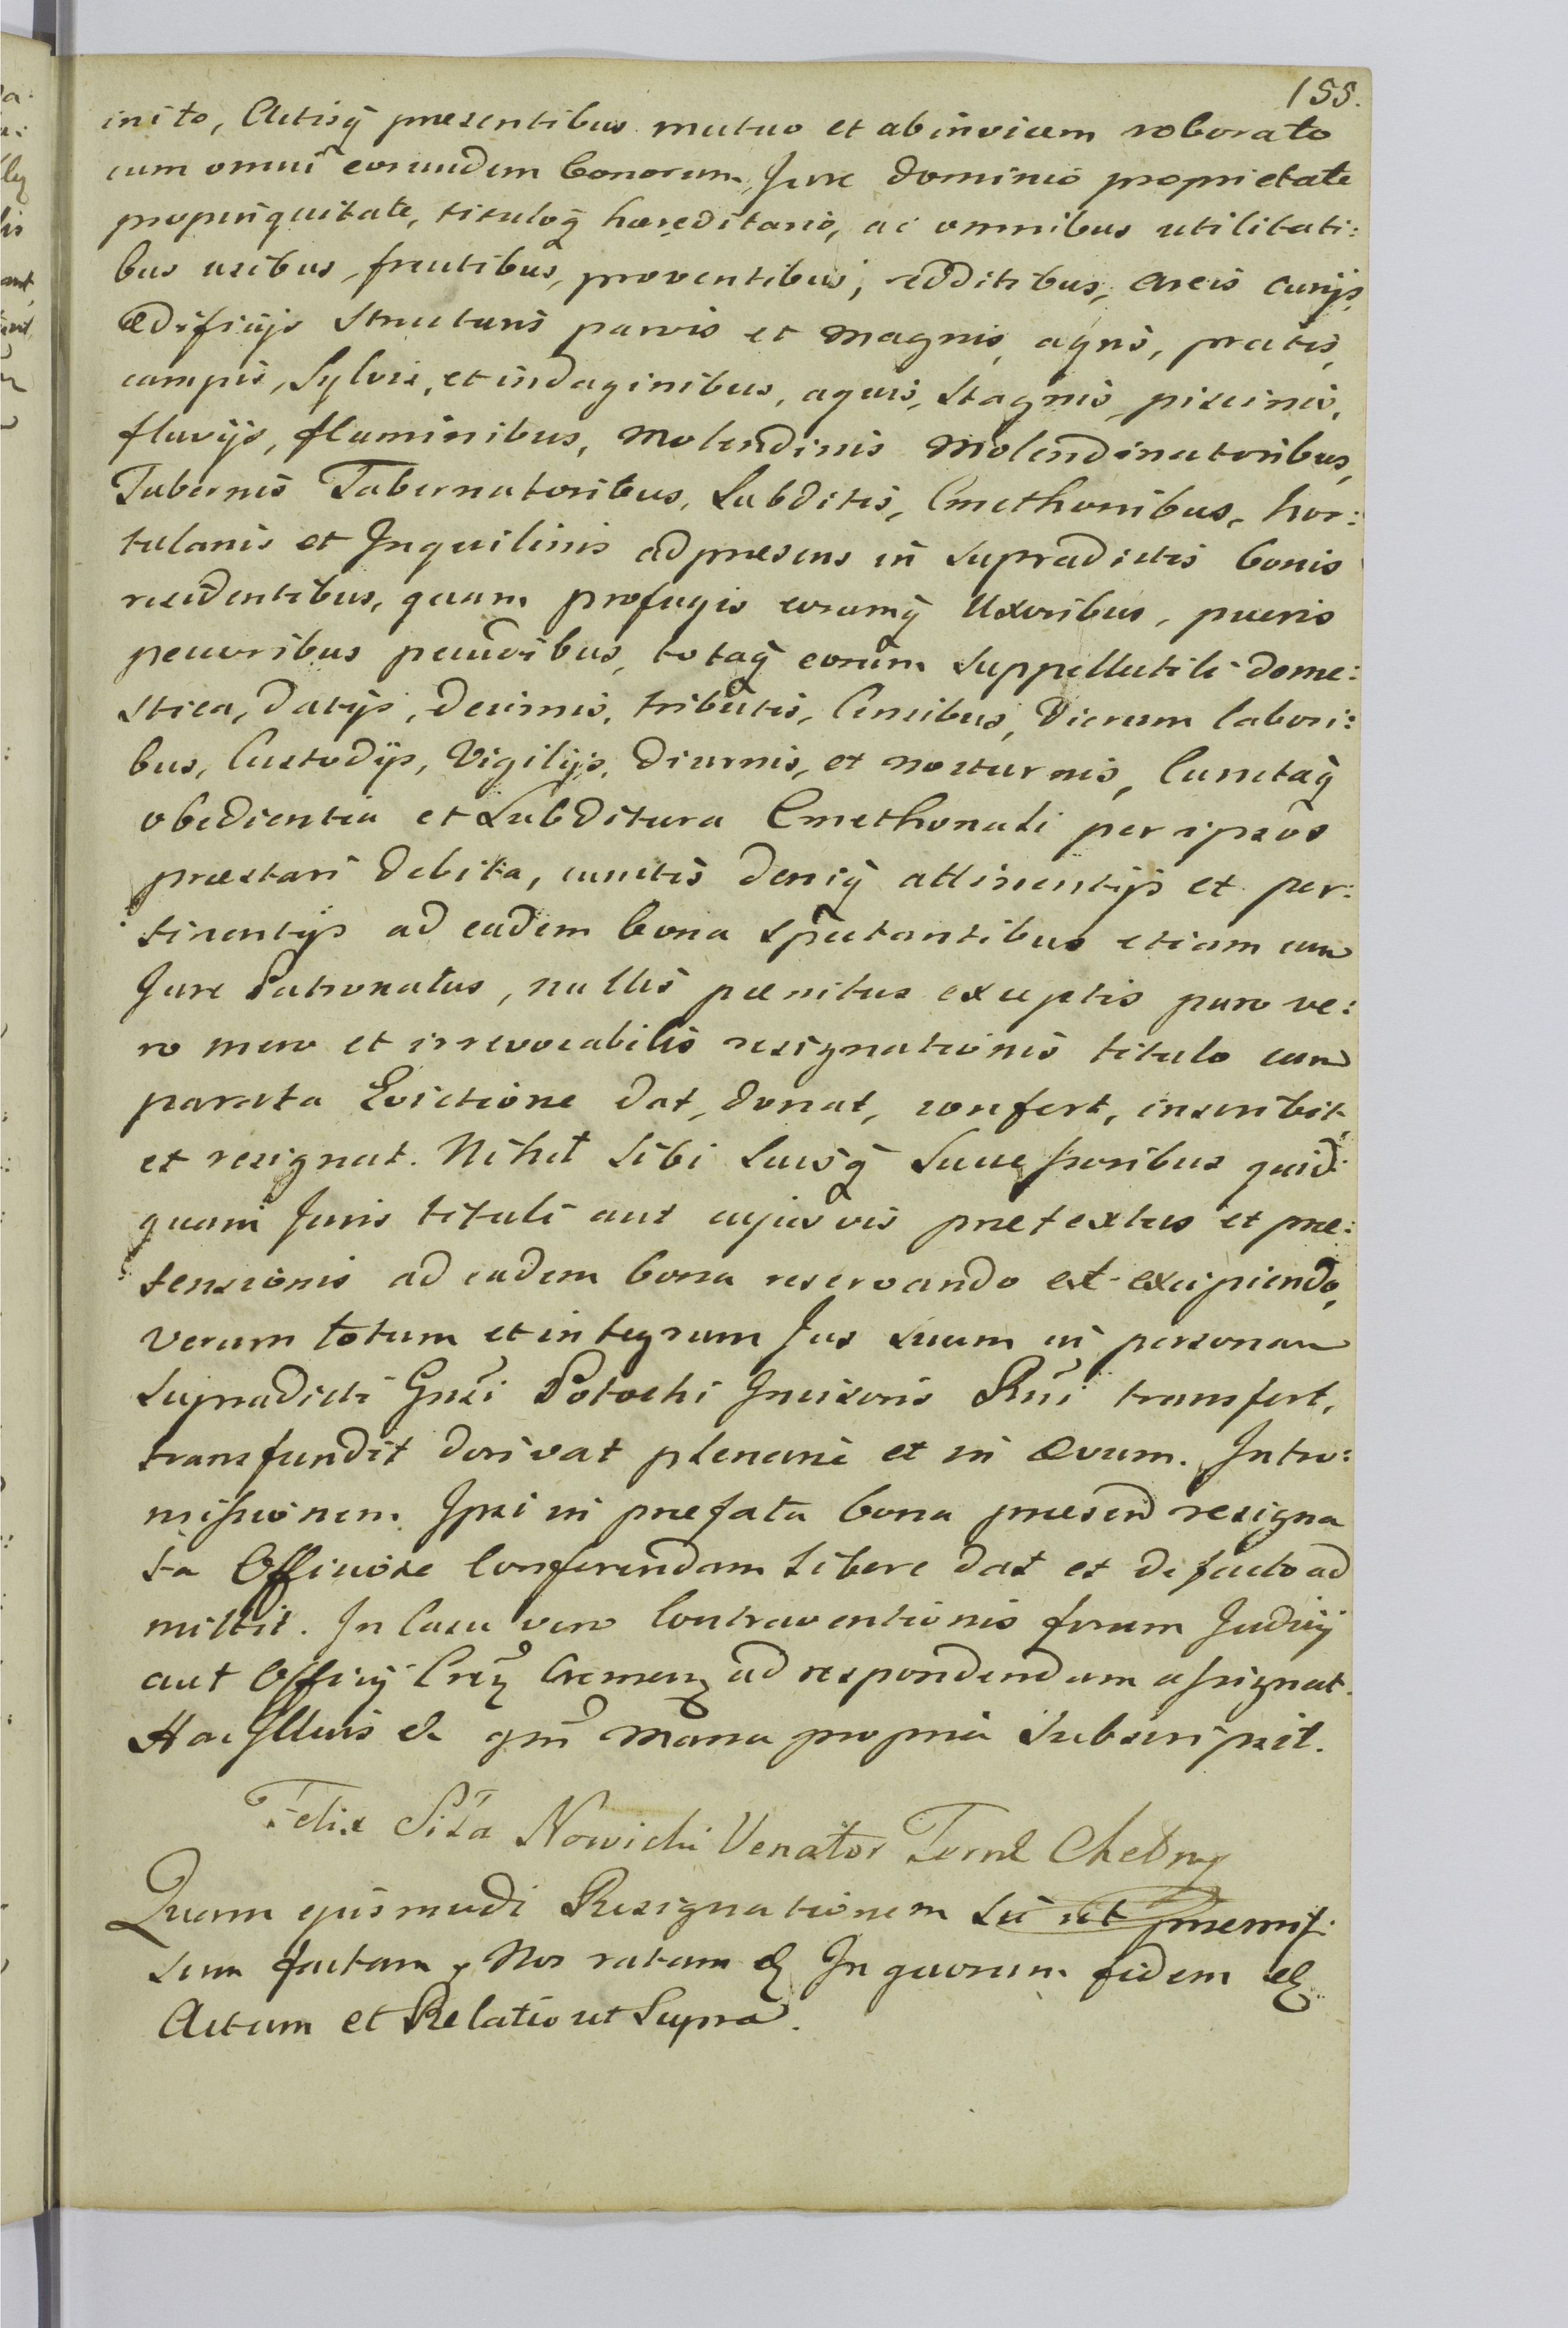 155.
inito, Actisq̃ præsentibus mutuo et abinvicem roborato
cum omni eorundem bonorum, Jure dominio proprietate
propinquitate, tituloq̃ hæreditario, ac omnibus utilitati:
bus usibus, fructibus, proventibus, redditibus, areis curijs,
ædificijs structuris parvis et magnis, agris, pratis,
campis, Sylvis, et indaginibus, aquis, stagnis, piscinis,
fluvijs, fluminibus, molendinis molendinatoribus,
Tabernis Tabernatoribus, Subditis, Cmethonibus, hor:
tulanis et Inquilinis ad præsens in supradictis bonis
residentibus, quam profugis eorumq̃ Uxoribus, pueris
pecoribus pecudibus, totaq̃ eorum suppellectili dome:
stica, datijs, decimis, tributis, Censibus, Dierum labori:
bus, Custodijs, Vigilijs, diurnis, et nocturnis, Cunctaq̃
obedientia et Subditura Cmethonali per ipsos
præstari debita, cunctis deniq̃ attinentijs et per:
tinentijs ad eadem bona spectantibus etiam cum
Jure Patronatus, nullis pænitus exceptis puro ve:
ro mero et irrevocabilis resignationis titulo cum
parata Evictione dat, donat, confert, inscribit,
et resignat. Nihil sibi suisq̃ Successoribus quid:
quam Juris tituli aut cujusvis prætextus et præ:
tensionis ad eadem bona reservando et excipiendo,
verum totum et integrum Jus suum in personam
supradicti Gnsi Potocki Incisoris Rni transfert,
transfundit derivat plenarie et in ævum. Intro:
missionem Ipsi in præfata bona præsend resigna
ta Officiose Conferendam libere dat et de facto ad
mittit. In Casu vero Contraventionis forum Judicij
aut Officij Cremenz ad respondendum assignat.
subscripsit.
Felix Nowicki Venator
Quam ejusmodi Resignationem sic ut præmis:
sum factam, Nos ratam & In quorum fidem &
Actum et Relatio ut Supra.